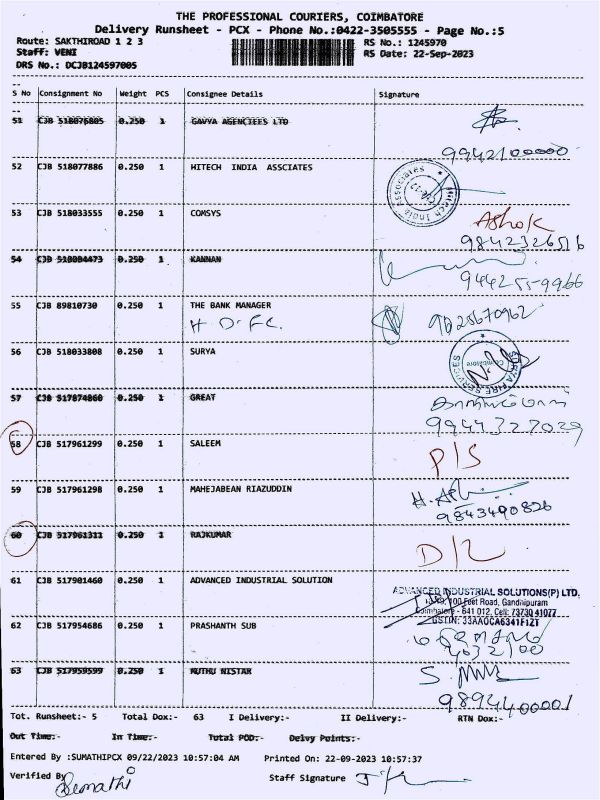 THE PROFESSIONAL COURIERS, COIMBATORE
Delivery Runsheet - PCX - Phone No.:0422-3505555 - Page No.:5
Route: SAKTHIROAD 1 2 3 RS No.: 1245970
Staff: VENI RS Date: 22-Sep-2023
DRS No.: DCJB124597005
S No Consignment No Weight PCS Consignee Details Signature
51 CJB 518076805 0.250 1 GAVYA AGENCIEES LTD
9942100000
52 CJB 518077886 0.250 1 HITECH INDIA ASSCIATES
Hitech India Associates
53 CJB 518033555 0.250 1 COMSYS Ashok
9842326516
54 CJB 518084473 0.250 1 KANNAN
944255-9966
55 CJB 89810730 0.250 1 THE BANK MANAGER
H D F C. 9025670962
56 CJB 518033808 0.250 1 SURYA
SURYA FIRE SERVICES Coimbatore
57 CJB 517874860 0.250 1 GREAT
9944327029
58 CJB 517961299 0.250 1 SALEEM P/S
59 CJB 517961298 0.250 1 MAHEJABEAN RIAZUDDIN
9843490826
60 CJB 517961311 0.250 1 RAJKUMAR D/L
61 CJB 517901460 0.250 1 ADVANCED INDUSTRIAL SOLUTION
ADVANCED INDUSTRIAL SOLUTIONS(P) LTD.
100 Feet Road, Gandhipuram
Coimbatore - 641 012, Cell: 73730 41077
GSTIN: 33AAOCA6341F1ZT
62 CJB 517954686 0.250 1 PRASHANTH SUB
63 CJB 517959599 0.250 1 KUTHU NISTAR
9894400001
Tot. Runsheet:- 5 Total Dox:- 63 I Delivery:- II Delivery:- RTN Dox:-
Out Time:- In Time:- Total POD:- Delvy Points:-
Entered By :SUMATHIPCX 09/22/2023 10:57:04 AM Printed On: 22-09-2023 10:57:37
Verified By Staff Signature